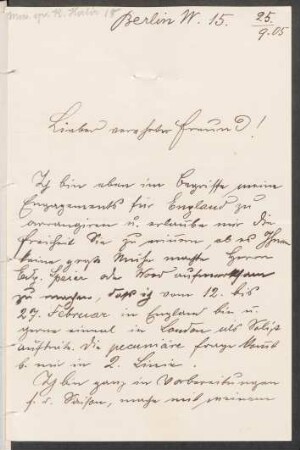 Berlin W. 15. 25/9.05
Lieber verehrter Freund!
Ich bin eben im Begriffe meine
Engagements für England zu
arrangiren u. erlaube mir die
Freiheit Sie zu , ob es Ihnen
keine große Mühe machte Herrn
Edg. Speier oder Wood aufmerksam
zu machen, daß ich vom 12. bis
27. Februar in England bin u.
gerne einmal in London als Solist
auftrete. Die pecuniäre Frage
b. mir in 2. Linie.
Ich bin ganz in Vorbereitungen
f. d. Saison, mache mit meinem